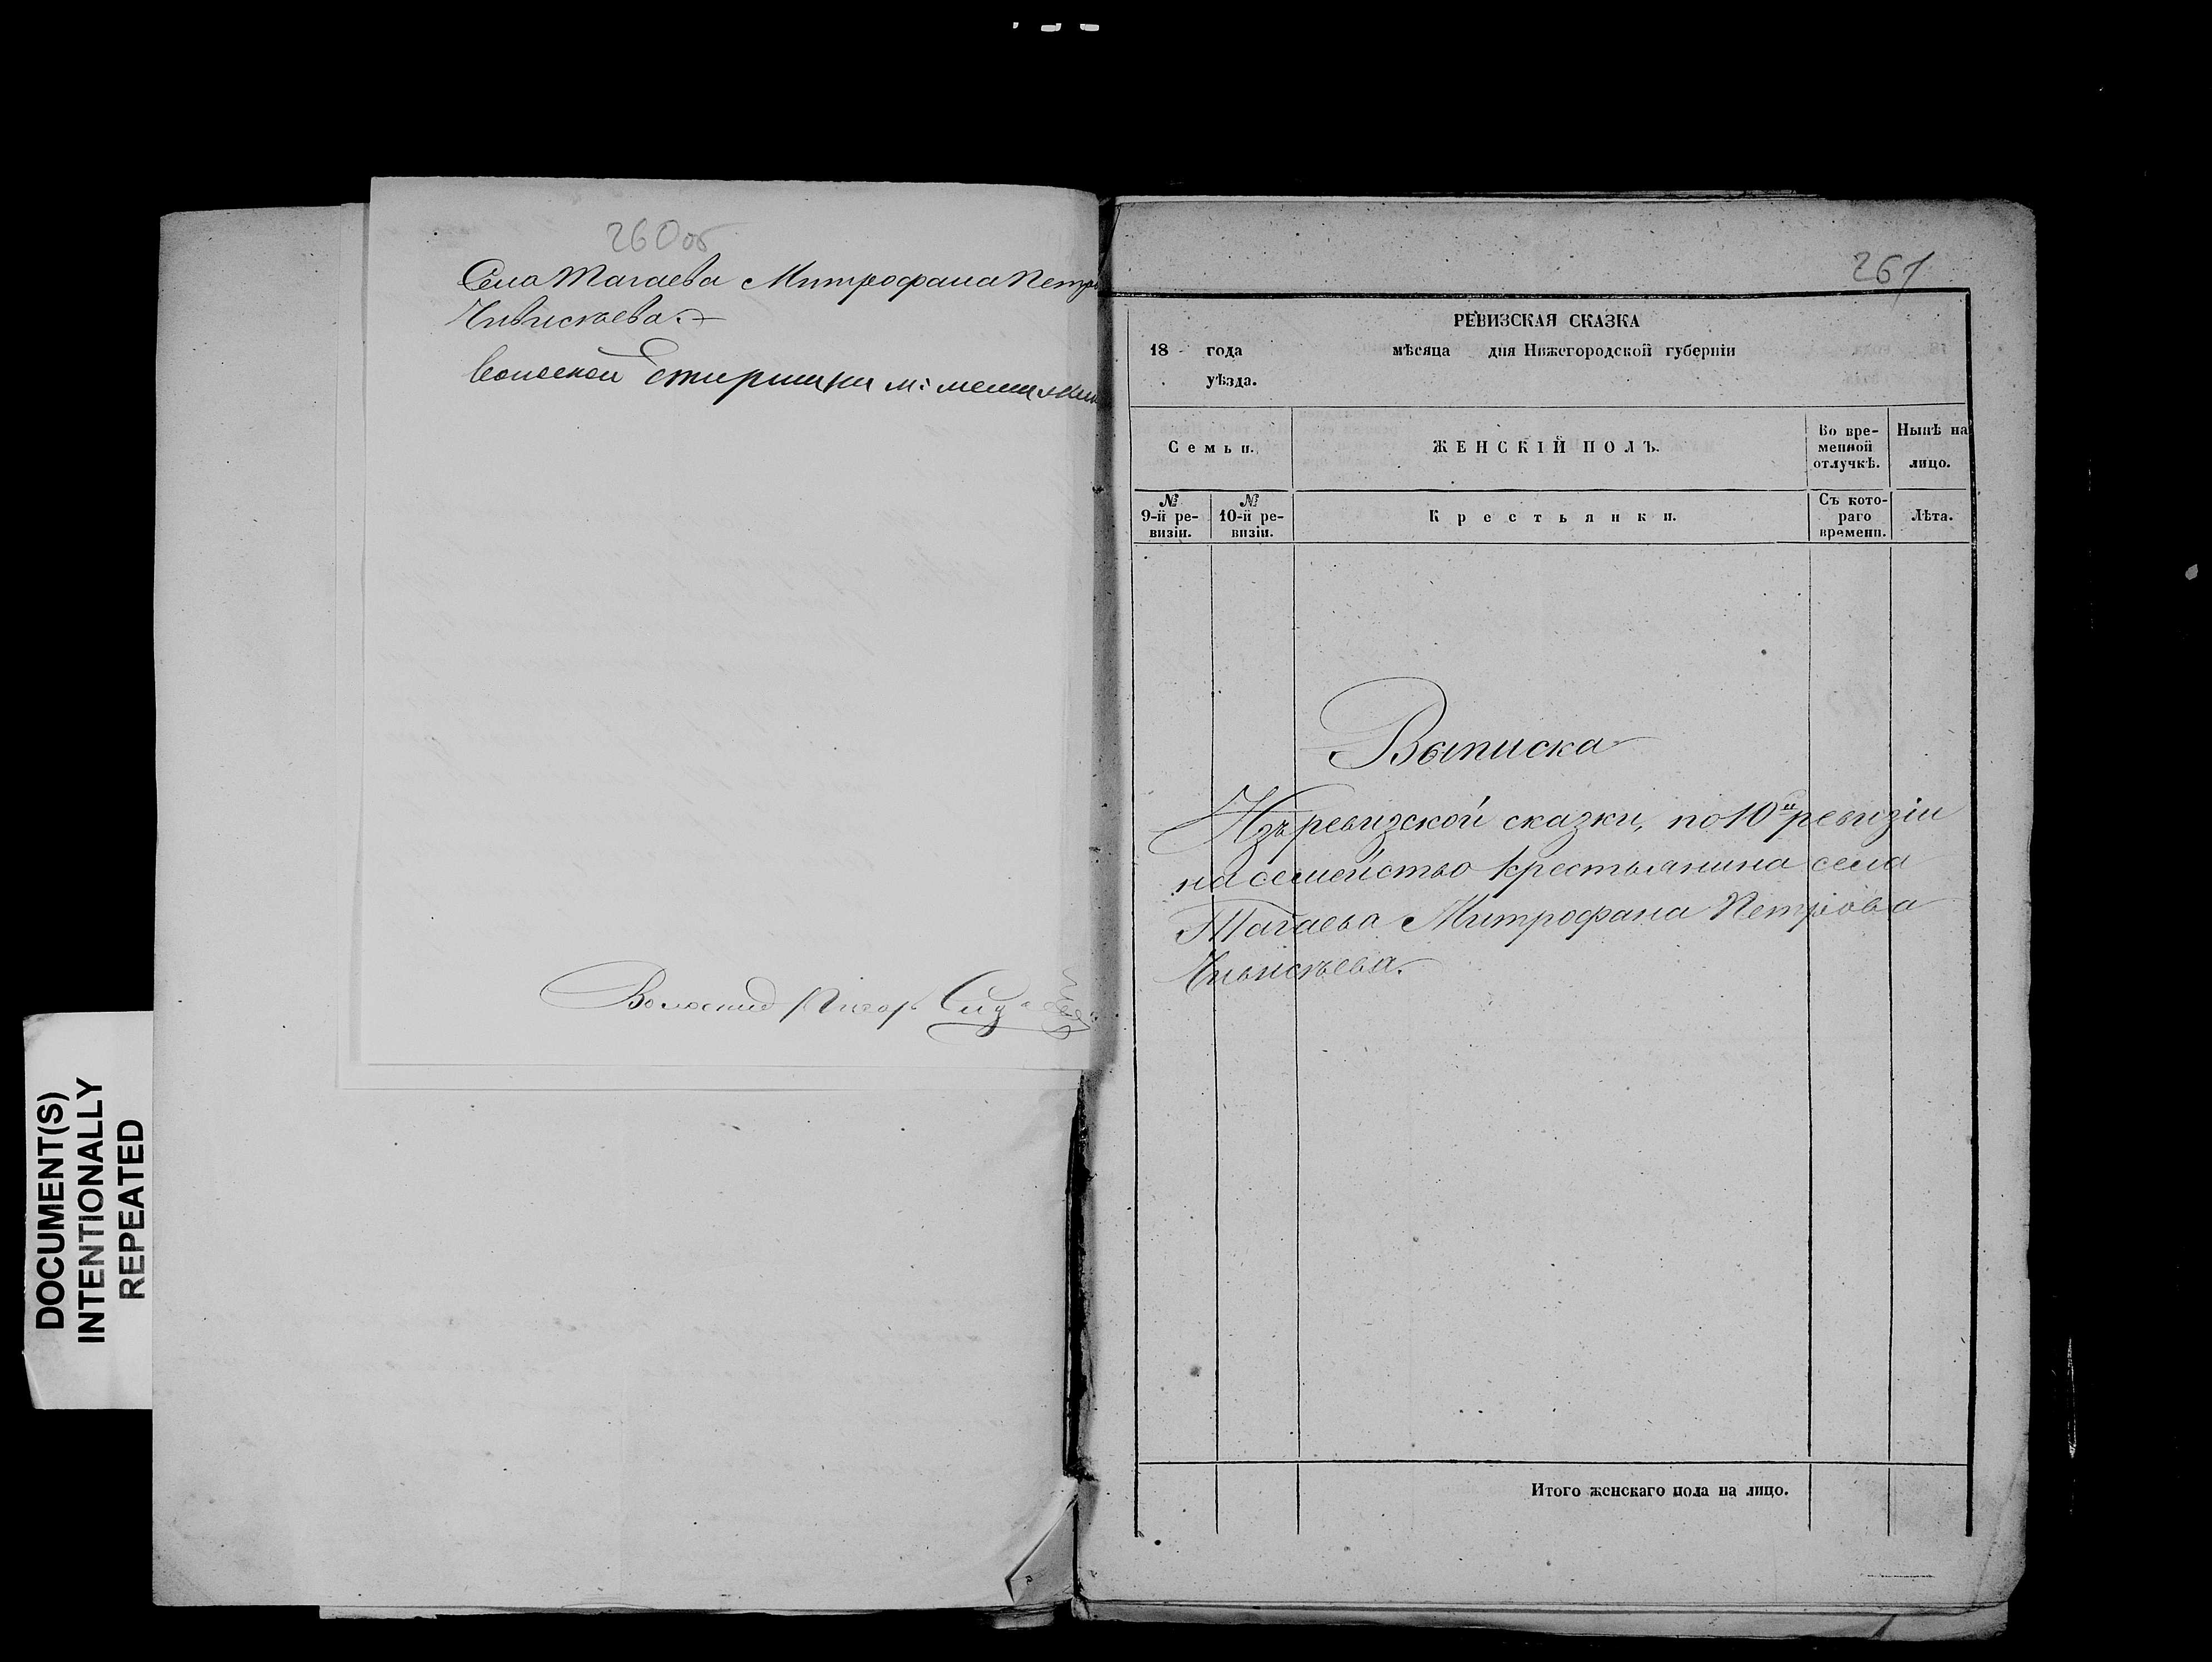 260об
Села Тагаева Митрофана Петро
Чивискаева.
Волосной Старшина м:
Волосной Писарь
DOCUMENT(S)
INTENTIONALLY
REPEATED
261
РЕВИЗСКАЯ СКАЗКА
18 года мѣсяца дня Нижегородской губерніи
уѣзда.
Семьи. ЖЕНСКІЙ ПОЛЪ. Во временной отлучкѣ. Нынѣ на лицо.
№ 9-й ревизіи. № 10-й ревизіи. Крестьянки. Съ котораго времени. Лѣта.
Выписка
Изъ ревизской сказки, по 10й ревизіи
на семейство крестьянина села
Тагаева Митрофана Петрова
Чивискаева.
Итого женскаго пола на лицо.